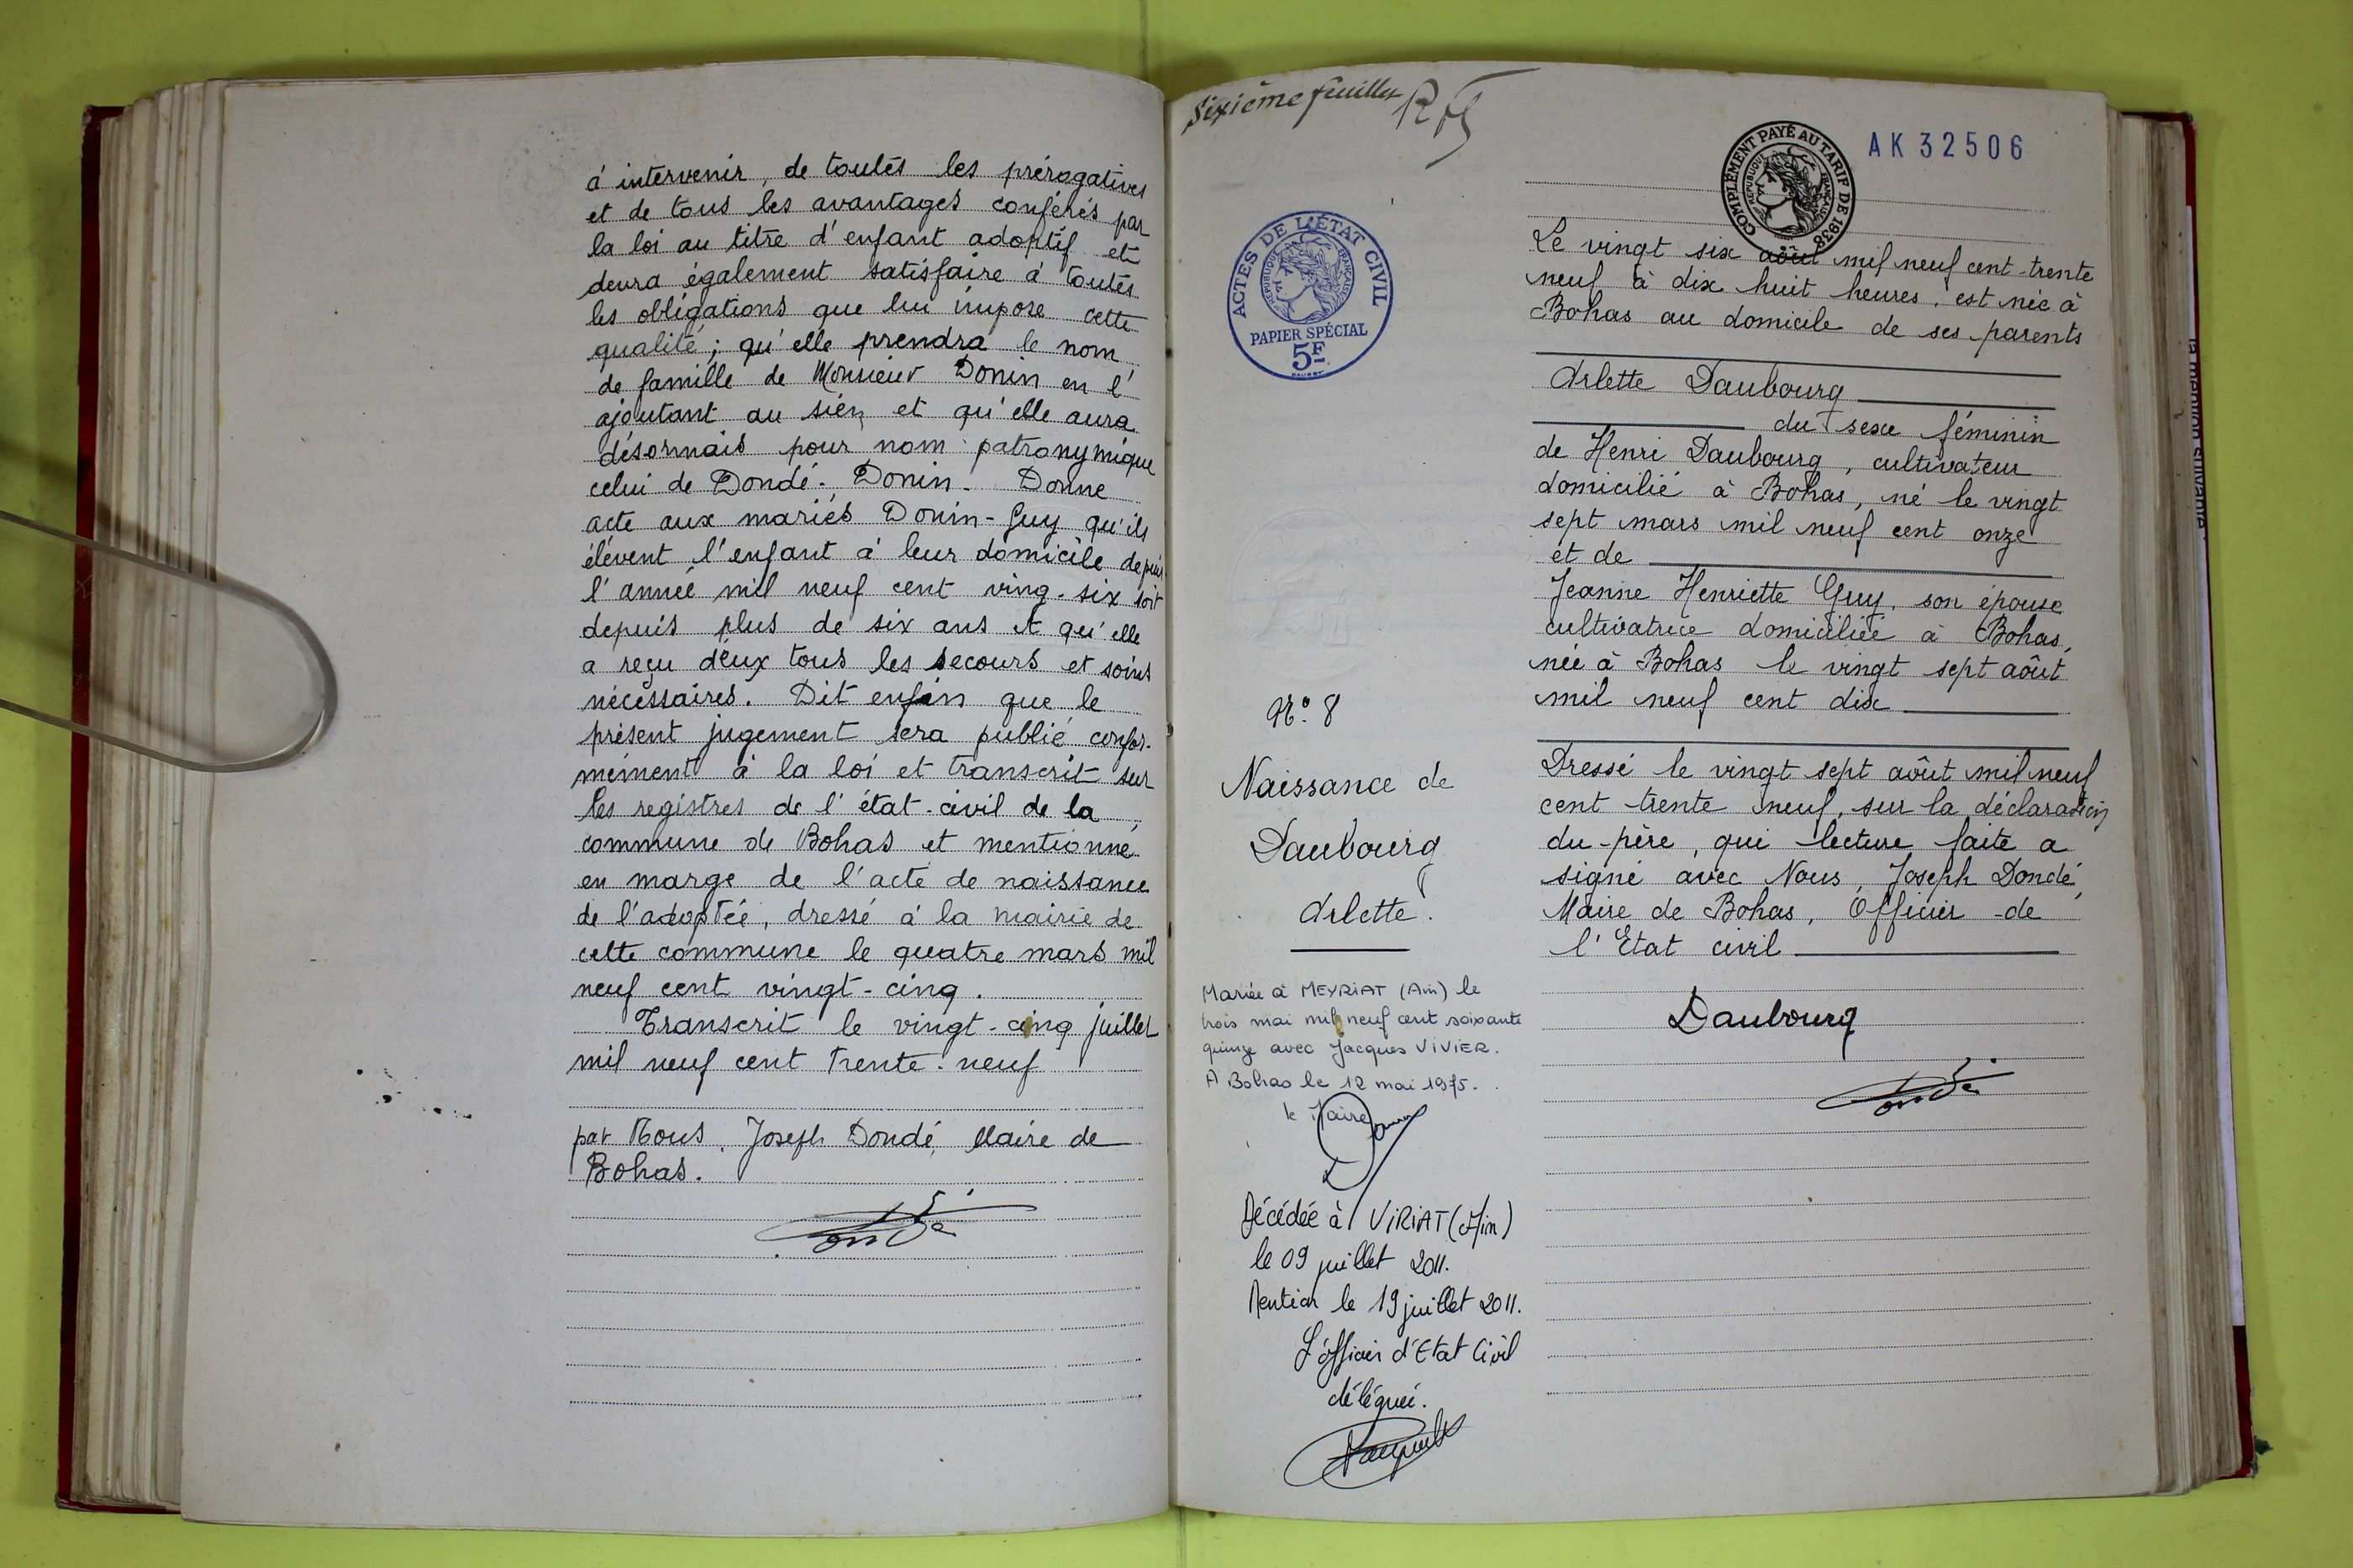 à intervenir, de toutes les prérogatives
et de tous les avantages conférés par
la loi au titre d'enfant adoptif et
devra également satisfaire à toutes
les obligations que lui impose cette
qualité ; qu'elle prendra le nom
de famille de Monsieur Donin en l'
ajoutant au sien et qu'elle aura
désormais pour nom patronymique
celui de Dondé-Donin - Donne
acte aux mariés Donin-Guy qu'ils
élèvent l'enfant à leur domicile depuis
l'année mil neuf cent ving-six soit
depuis plus de six ans et qu'elle
a reçu d'eux tous les secours et soins
nécessaires. Dit enfin que le
présent jugement sera publié confor-
mément à la loi et transcrit sur
les registres de l'état-civil de la
commune de Bohas et mentionné
en marge de l'acte de naissance
de l'adoptée, dressé à la mairie de
cette commune le quatre mars mil
neuf cent vingt-cinq.
Transcrit le vingt-cinq juillet
mil neuf cent trente-neuf
par Nous, Joseph Dondé, Maire de
Bohas.
Dondé
Sixième feuillet
ACTES DE L'ÉTAT CIVIL
RÉPUBLIQUE FRANÇAISE
PAPIER SPÉCIAL
5F
N° 8
Naissance de
Daubourg
Arlette.
Mariée à MEYRIAT (Ain) le
trois mai mil neuf cent soixante
quinze avec Jacques VIVIER.
A Bohas le 12 mai 1975.
le Maire
Décédée à VIRIAT (Ain)
le 09 juillet 2011.
Mention le 19 juillet 2011.
L'officier d'Etat Civil
délégué.
COMPLÉMENT PAYÉ AU TARIF DE 1938
RÉPUBLIQUE FRANÇAISE
AK 32506
Le vingt six août mil neuf cent trente
neuf à dix huit heures, est née à
Bohas au domicile de ses parents
Arlette Daubourg
du sexe féminin
de Henri Daubourg, cultivateur
domicilié à Bohas, né le vingt
sept mars mil neuf cent onze
et de
Jeanne Henriette Guy, son épouse
cultivatrice domiciliée à Bohas,
née à Bohas le vingt sept août
mil neuf cent dix
Dressé le vingt sept août mil neuf
cent trente neuf, sur la déclaration
du père, qui lecture faite a
signé avec Nous, Joseph Dondé,
Maire de Bohas, Officier de
l'Etat civil
Daubourg
Dondé